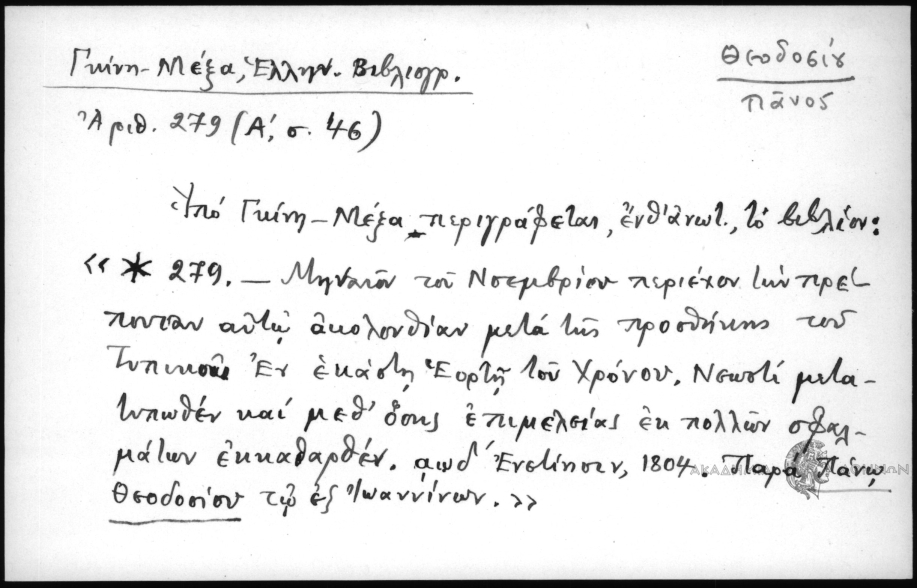 Γκίνη-Μέξα, Ἑλλην. Βιβλιογρ.
Θεοδοσίου
Πᾶνος
Ἀριθ. 279 (Α΄, σ. 46)
Ὑπό Γκίνη-Μέξα περιγράφεται, ἔνθ' ἀνωτ., τό βιβλίον:
« * 279. — Μηναῖον τοῦ Νοεμβρίου περιέχον τήν πρέ-
πουσαν αὐτῷ ἀκολουθίαν μετά τῆς προσθήκης τοῦ
Τυπικοῦ Ἐν ἑκάστῃ Ἑορτῇ τοῦ Χρόνου. Νεωστί μετα-
τυπωθέν καί μεθ' ὅσης ἐπιμελείας ἐκ πολλῶν σφαλ-
μάτων ἐκκαθαρθέν. αωδ΄ Ἐνετίησιν, 1804. Παρά Πάνῳ
Θεοδοσίου τῷ ἐξ Ἰωαννίνων. »
ΑΚΑΔΗΜΙΑ ΑΘΗΝΩΝ